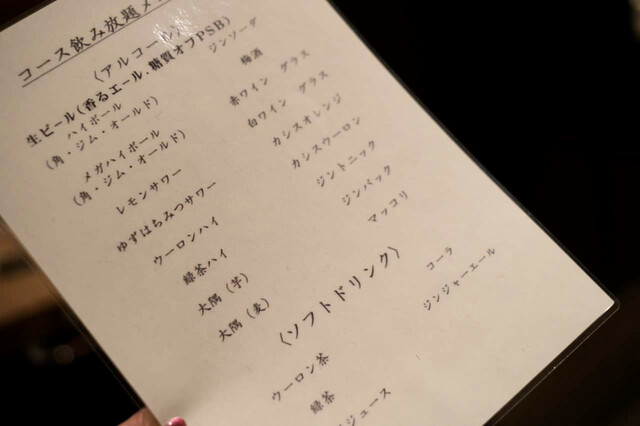 コース飲み放題メ
〈アルコール〉
生ビール(香るエール.糖質オフPSB)
ハイボール
(角・ジム・オールド)
メガハイボール
(角・ジム・オールド)
レモンサワー
ゆずはちみつサワー
ウーロンハイ
緑茶ハイ
大隅(芋)
大隅(麦)
ジンソーダ
梅酒
赤ワイン グラス
白ワイン グラス
カシスオレンジ
カシスウーロン
ジントニック
ジンバック
マッコリ
〈ソフトドリンク〉
ウーロン茶
緑茶
ジュース
コーラ
ジンジャーエール